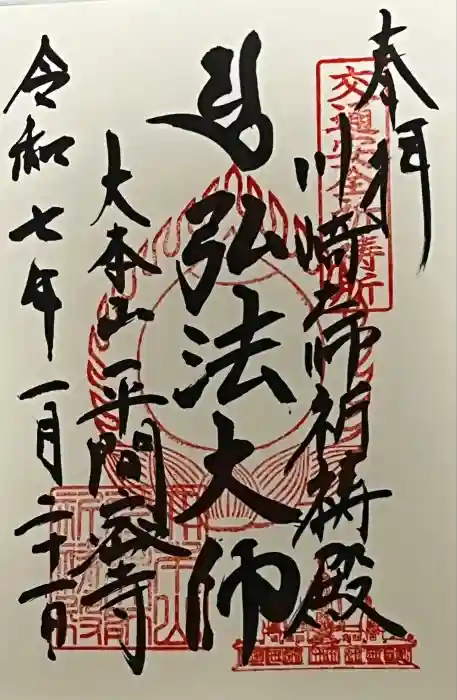 奉拝
川崎大師祈祷殿
弘法大師
大本山平間寺
令和七年一月二十一日
交通安全祈祷所